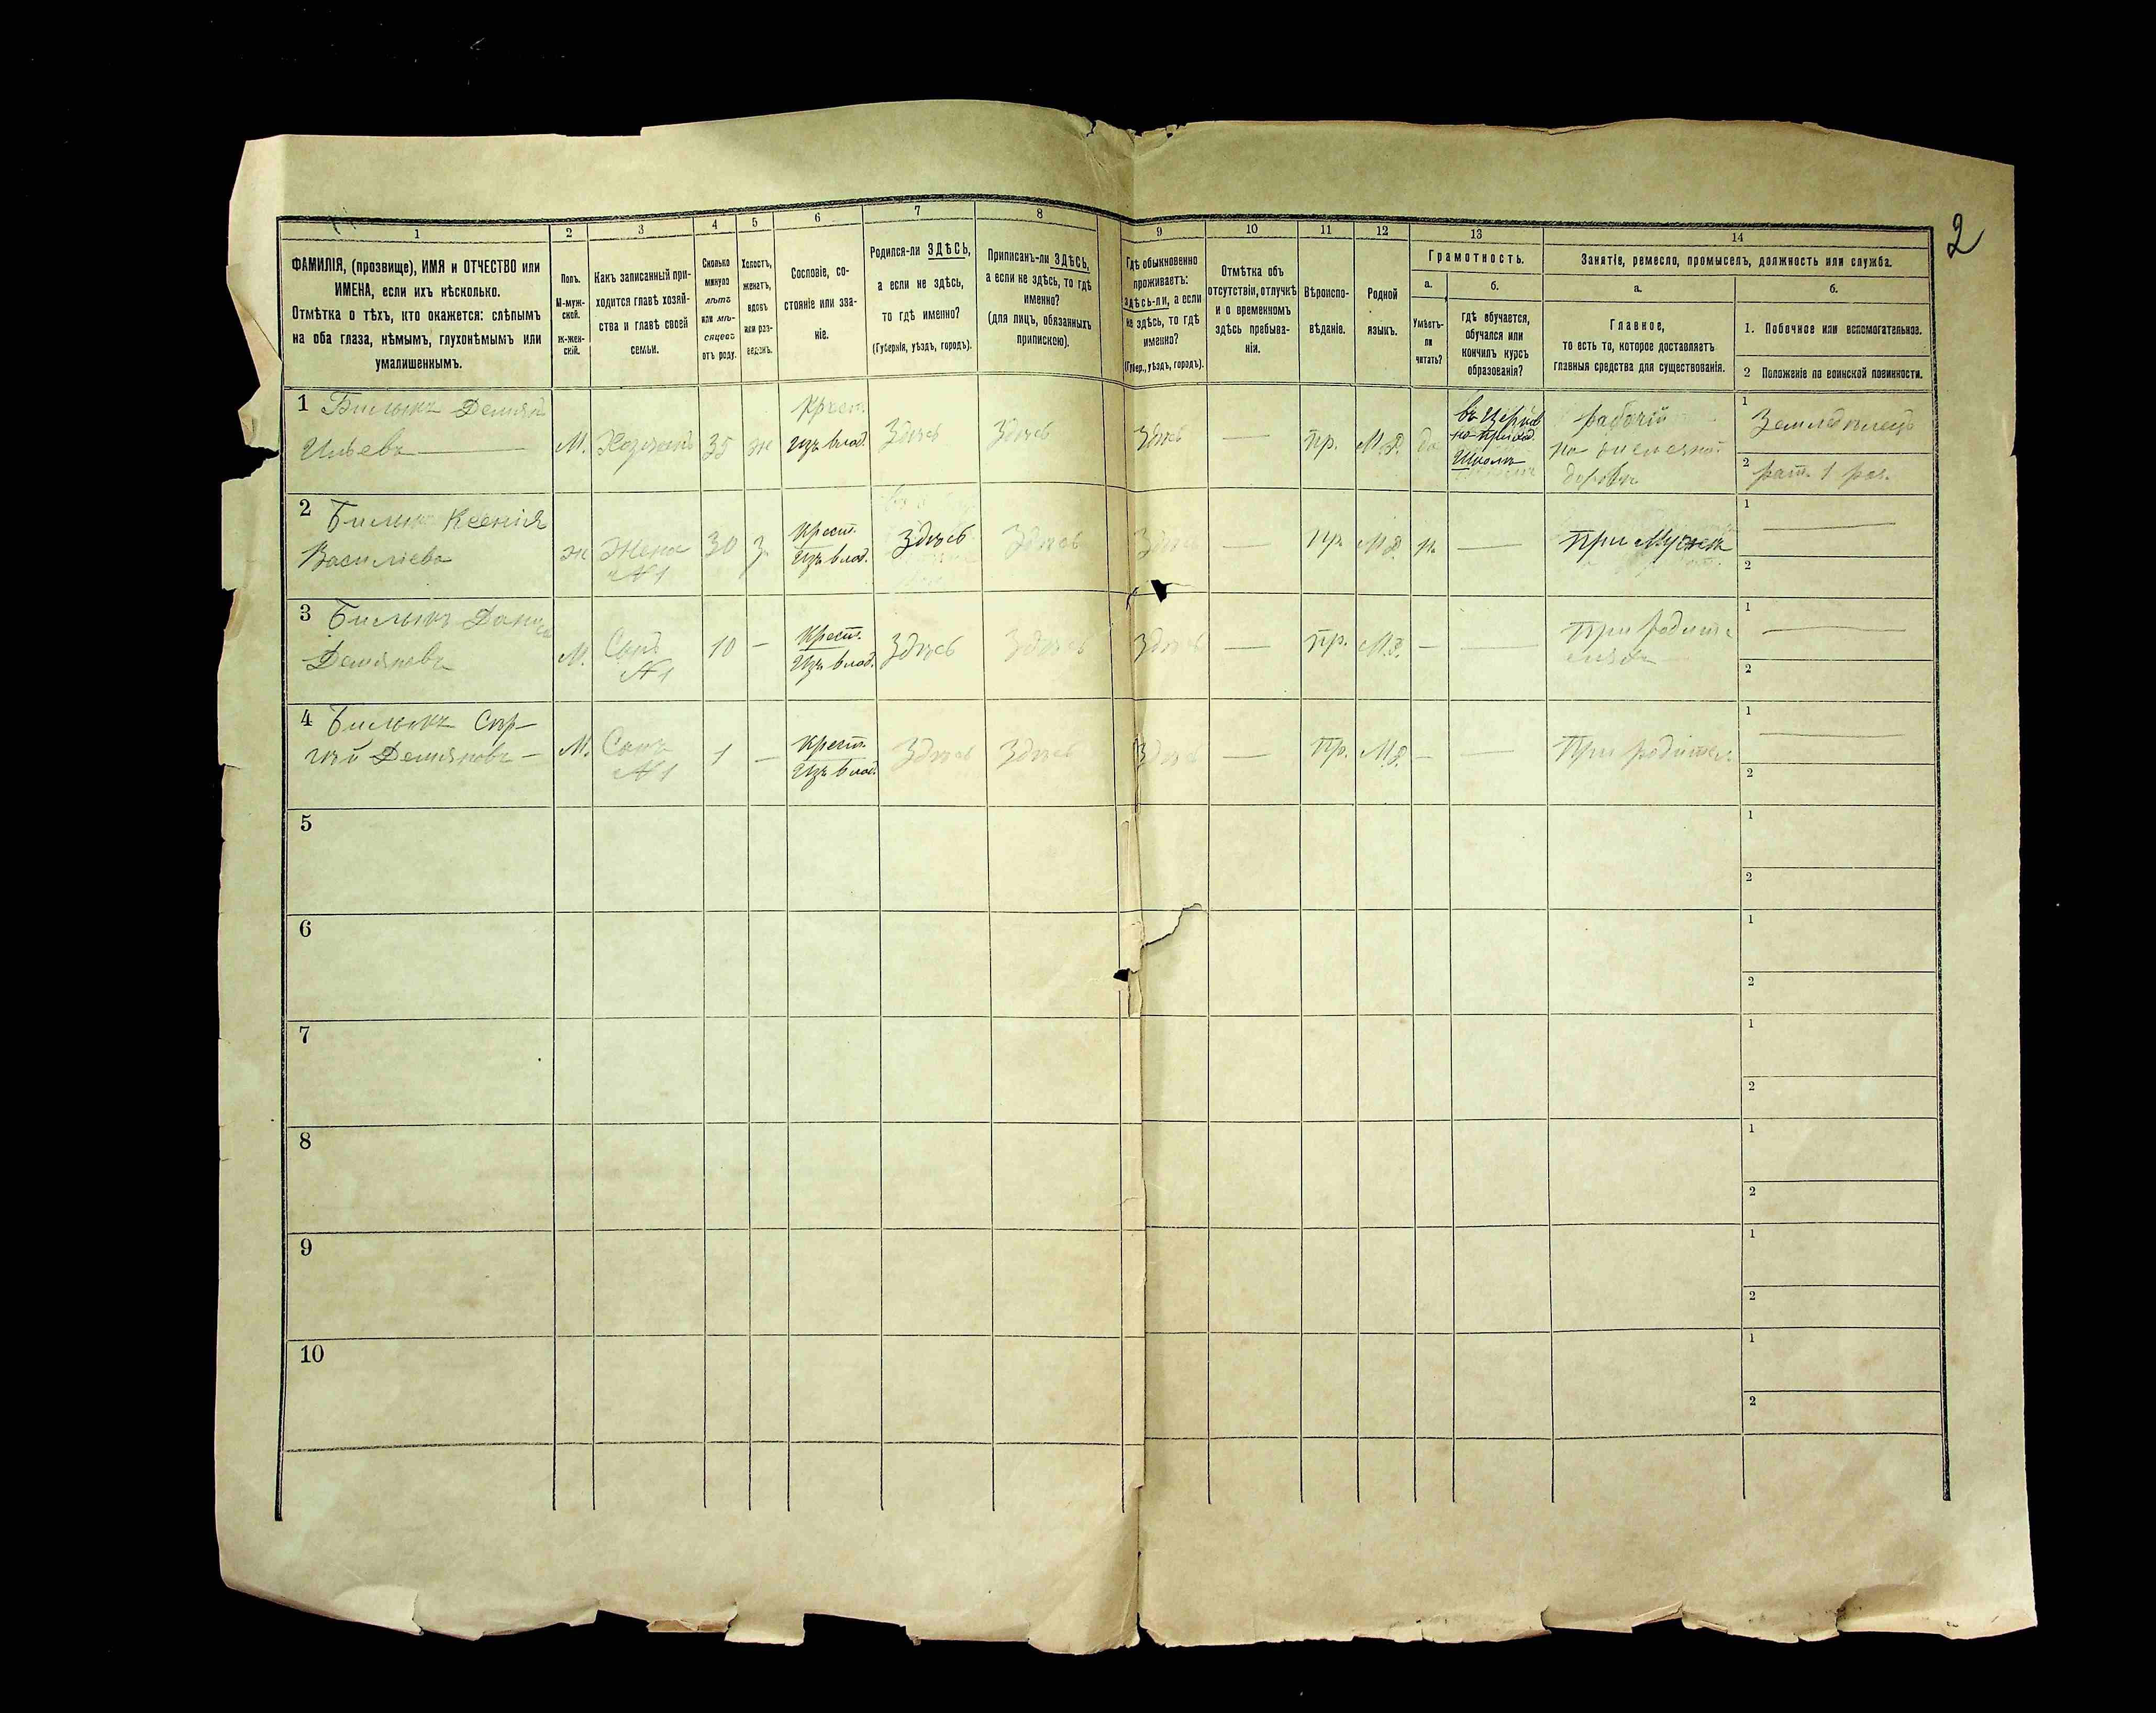 2
1
2
3
4
5
6
7
8
9
10
11
12
13
14
ФАМИЛІЯ, (прозвище), ИМЯ и ОТЧЕСТВО или
ИМЕНА, если ихъ нѣсколько.
Отмѣтка о тѣхъ, кто окажется: слѣпымъ
на оба глаза, нѣмымъ, глухонѣмымъ или
умалишеннымъ.
Полъ.
М-муж-
ской.
ж-жен-
скій.
Какъ записанный при-
ходится главѣ хозяй-
ства и главѣ своей
семьи.
Сколько
минуло
лѣтъ
или мѣ-
сяцевъ
отъ роду.
Холостъ,
женатъ,
вдовъ
или раз-
веденъ.
Сословіе, со-
стояніе или зва-
ніе.
Родился-ли ЗДѢСЬ,
а если не здѣсь,
то гдѣ именно?
(Губернія, уѣздъ, городъ).
Приписанъ-ли ЗДѢСЬ,
а если не здѣсь, то гдѣ
именно?
(для лицъ, обязанныхъ
припискою).
Гдѣ обыкновенно
проживаетъ:
здѣсь-ли, а если
не здѣсь, то гдѣ
именно?
(Губер., уѣздъ, городъ).
Отмѣтка объ
отсутствіи, отлучкѣ
и о временномъ
здѣсь пребыва-
ніи.
Вѣроиспо-
вѣданіе.
Родной
языкъ.
Грамотность.
а.
б.
Умѣетъ-
ли
читать?
гдѣ обучается,
обучался или
кончилъ курсъ
образованія?
Занятіе, ремесло, промыселъ, должность или служба.
а.
б.
Главное,
то есть то, которое доставляетъ
главныя средства для существованія.
1. Побочное или вспомогательное.
2 Положеніе по воинской повинности.
1 Билыкъ Демянъ
Ильевъ
М.
Хозяинъ
35
ж
Крест.
Изъ влад.
Здѣсь
Здѣсь
Здѣсь
—
пр.
М.Р.
да
въ Церков
но-приход.
Школѣ
рабочій
на
1
Земледѣлецъ
2
рат. 1 раз.
2 Билык Ксенія
Василіева
ж
Жена
№1
30
з.
Крест.
Изъ влад.
Здѣсь
Здѣсь
Здѣсь
—
пр.
М.Р.
н.
—
При Мужѣ
1 —
2
3 Билыкъ
Демяновъ
М.
Сынъ
№1
10
—
Крест.
Изъ влад.
Здѣсь
Здѣсь
Здѣсь
—
пр.
М.Р.
—
—
При родите
ляхъ
1 —
2
4 Билыкъ Сер-
гѣй Демяновъ —
М.
Сынъ
№1
1
—
Крест.
Изъ влад.
Здѣсь
Здѣсь
Здѣсь
—
Пр.
М.Р.
—
—
При родител.
1 —
2
5
1
2
6
1
2
7
1
2
8
1
2
9
1
2
10
1
2